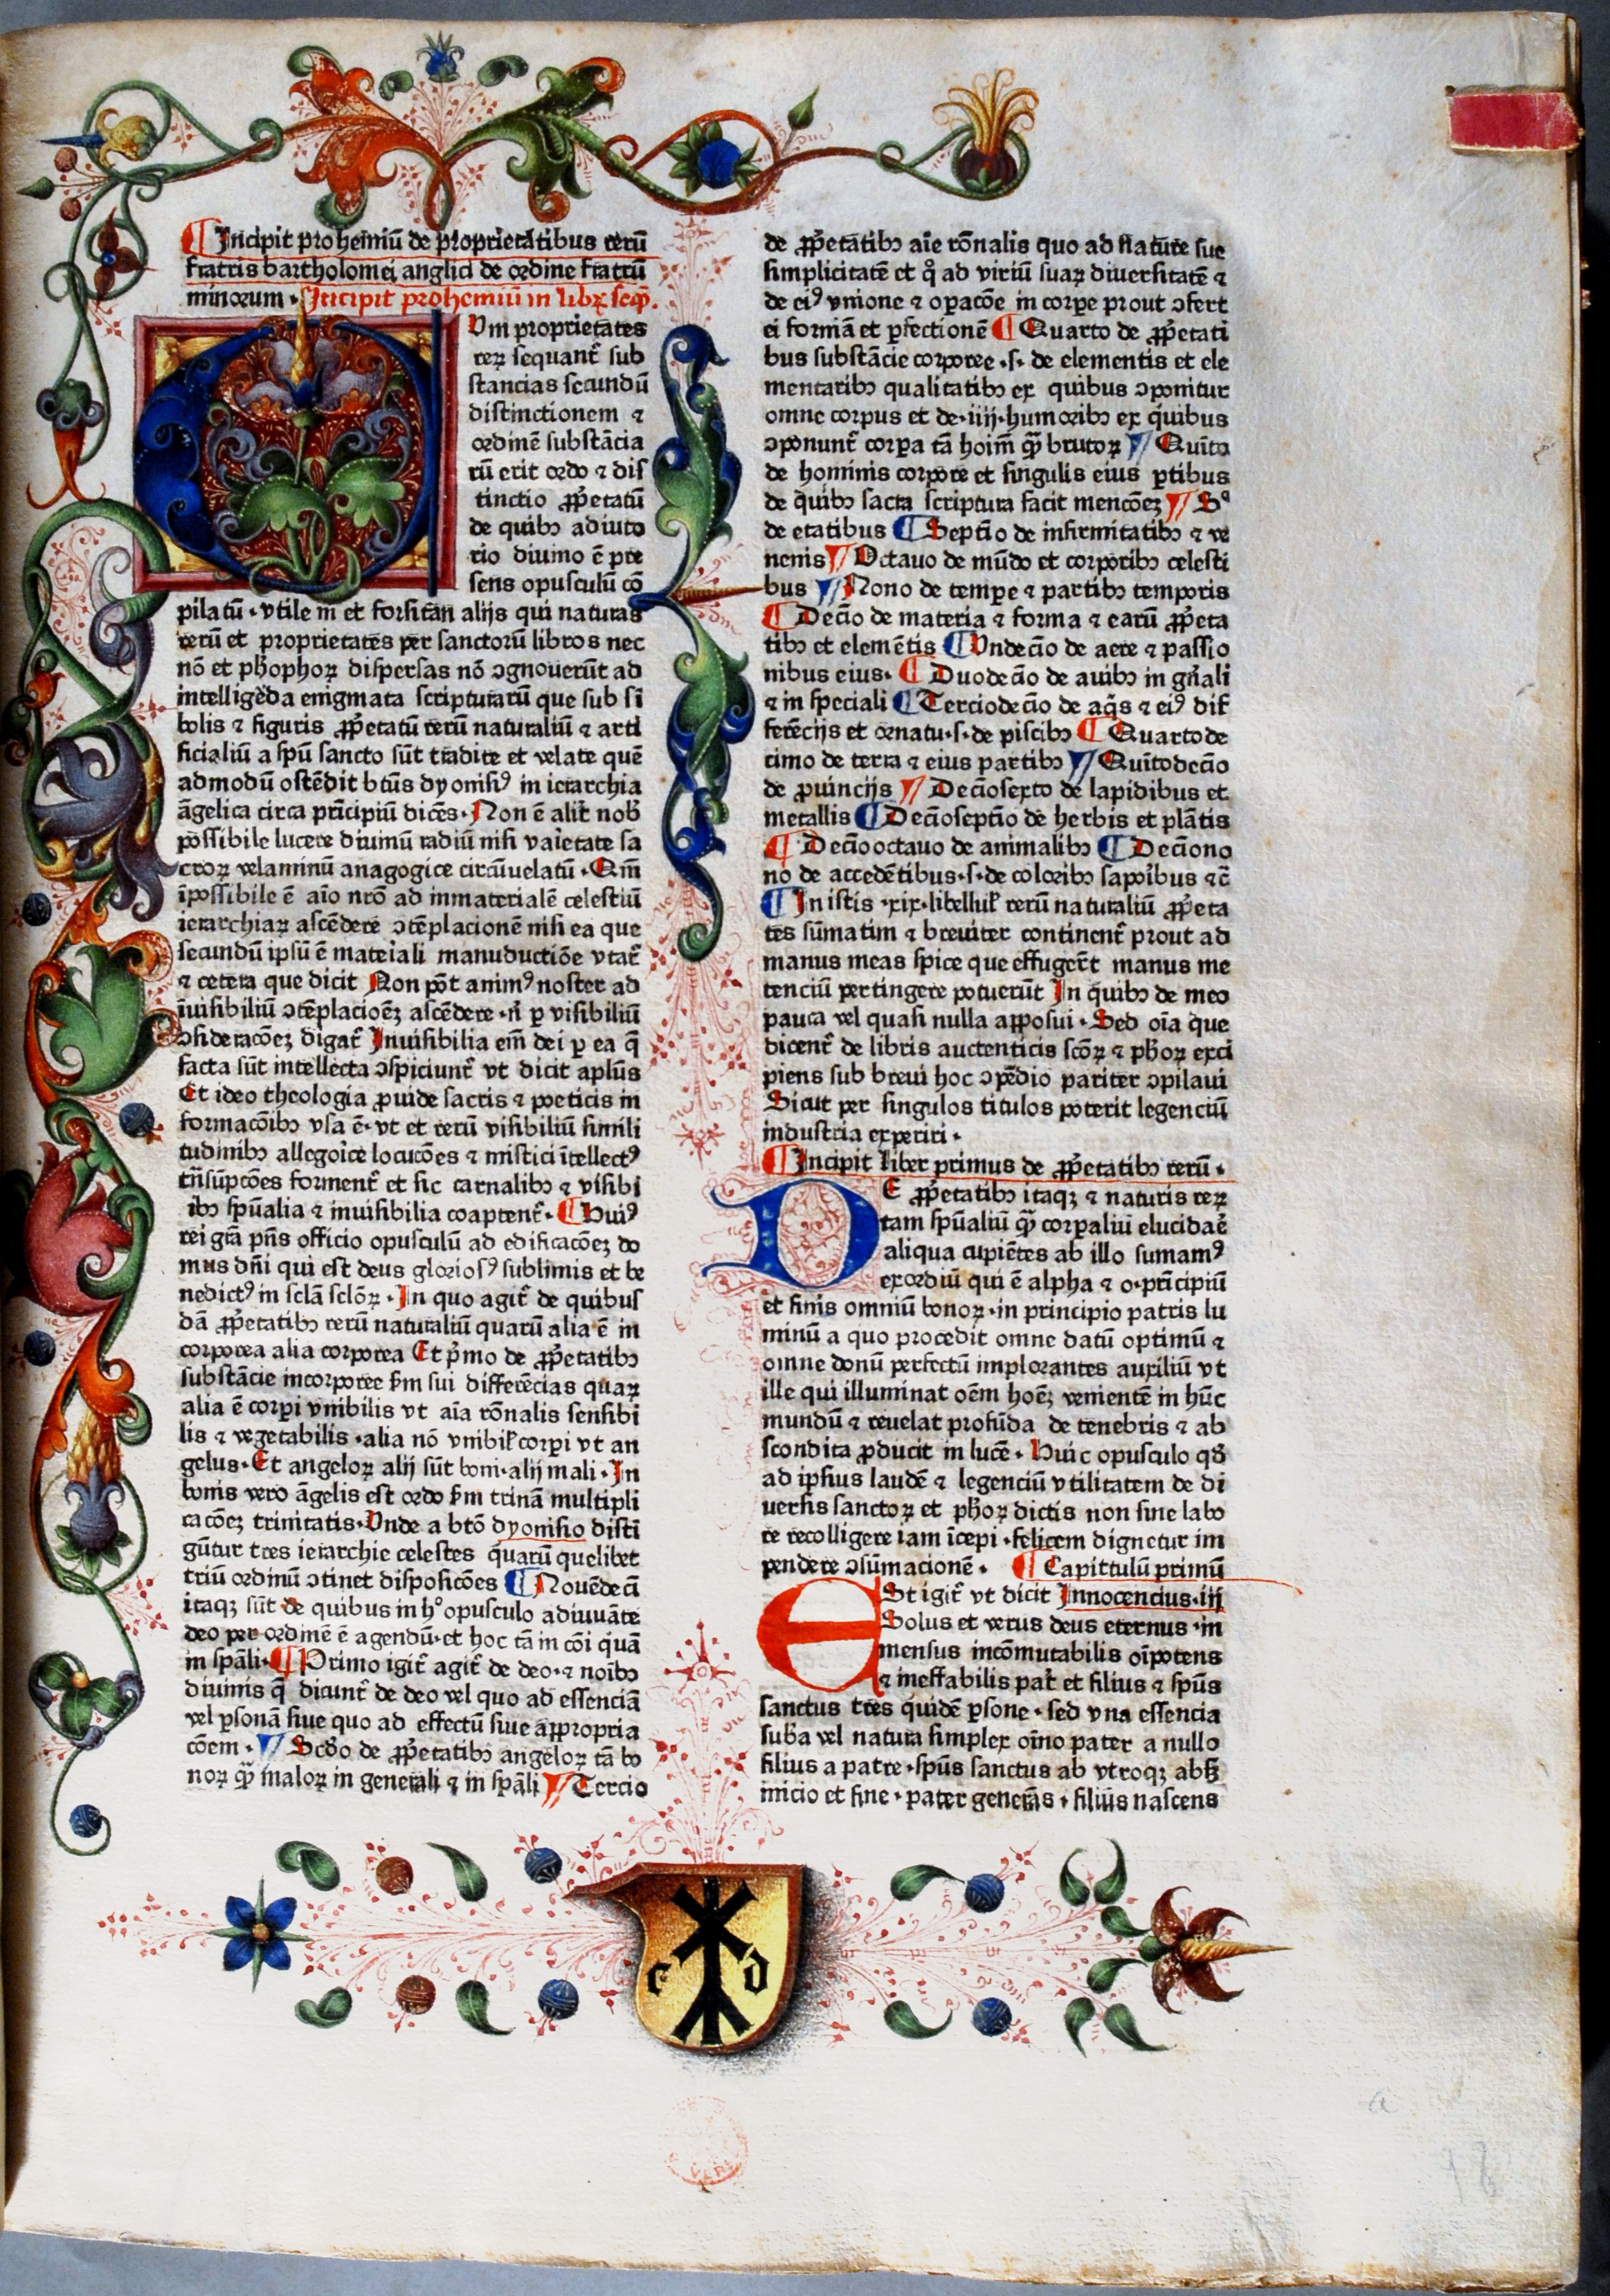 Incipit prohemiū de proprietatibus rerū
fratris bartholomei anglici de ordine fratrū
minorum · Incipit prohemiū in libꝝ seqͣ.
Vm proprietates
rerꝝ sequant᷑ sub
stancias secundū
distinctionem ⁊
ordinē substācia
rū erit ordo ⁊ dis
tinctio ꝓp̄etatū
de quibꝫ adiuto
rio diuino ē pre
sens opusculū cō
pilatū · vtile m̄ et forsitan alijs qui naturas
rerū et proprietates per sanctorū libros nec
nō et ph̄ophoꝝ dispersas nō ꝯgnouerūt ad
intelligēda enigmata scripturarū que sub si
bolis ⁊ figuris ꝓp̄etatū rerū naturaliū ⁊ arti
ficialiū a spū sancto sūt tradite et velate quē
admodū ostēdit btūs dyonisiꝰ in ierarchia
āgelica circa prīcipiū dicēs · Non ē alit᷑ nob̄
possibile lucere diuinū radiū nisi vaietate sa
croꝝ velaminū anagogice circūuelatū · Qm̄
īpossibile ē aīo nrō ad inmaterialē celestiū
ierarchiaꝝ ascēdere ꝯtēplacionē nisi ea que
secundū ipsū ē materiali manuductiōe vtat᷑
⁊ cetera que dicit Non pōt animꝰ noster ad
īuisibiliū ꝯtēplacioēꝫ ascēdere · n̄ ꝑ visibiliū
ꝯsideracōeꝫ digat᷑ Inuisibilia em̄ dei ꝑ ea q̄
facta sūt intellecta ꝯspiciunt᷑ vt dicit aplūs
Et ideo theologia ꝓuide sacris ⁊ poeticis in
formacōibꝫ vsa ē · vt et rerū visibiliū simili
tudinibꝫ allegorice locucōes ⁊ mistici ītellectꝰ
trn̄sūpcōes forment᷑ et sic carnalibꝫ ⁊ visibi
ibꝫ spūalia ⁊ inuisibilia coaptent᷑ · Huiꝰ
rei grā pn̄s officio opusculū ad edificacōeꝫ do
mus dn̄i qui est deus gloriosꝰ sublimis et be
nedictꝰ in sclā sclōꝝ · In quo agit᷑ de quibus
dā ꝓp̄etatibꝫ rerū naturaliū quarū alia ē in
corporea alia corporea Et p̄mo de ꝓp̄etatibꝫ
substācie incorporee ẜm sui differēcias quaꝝ
alia ē corpi vnibilis vt aīa rōnalis sensibi
lis ⁊ vegetabilis · alia nō vnibil̄ corpi vt an
gelus · Et angeloꝝ alij sūt boni · alij mali · In
bonis vero āgelis est ordo ẜm trinā multipli
cacōeꝫ trinitatis · Vnde a btō dyonisio disti
gūtur tres ierarchie celestes quarū quelibet
triū ordinū ꝯtinet disposicōes Nouēdecī
itaqꝫ sūt de quibus in hͦ opusculo adiuuāte
deo per ordinē ē agendū · et hoc tā in cōi quā
in spāli · Primo igit᷑ agit᷑ de deo · ⁊ noībꝫ
diuinis q̄ dicunt᷑ de deo vel quo ad essenciā
vel ꝑsonā siue quo ad effectū siue appropria
cōem · Scdo de ꝓp̄etatibꝫ angeloꝝ tā bo
noꝝ qͣ̄ maloꝝ in generali ⁊ in spāli Tercio
de ꝓp̄etatibꝫ aīe rōnalis quo ad nature sue
simplicitatē et qͦ ad viriū suaꝝ diuersitatē ⁊
de eiꝰ vnione ⁊ opacōe in corpe prout ꝯfert
ei formā et ꝑfectionē Quarto de ꝓp̄etati
bus substācie corporee · s · de elementis et ele
mentaribꝫ qualitatibꝫ ex quibus ꝯponitur
omne corpus et de · iiij · humoribꝫ ex quibus
ꝯponunt᷑ corpa tā hoīm̄ qͣ̄ brutoꝝ Quīto
de hominis corpore et singulis eius ꝑtibus
de quibꝫ sacra scriptura facit mencōeꝫ Sͣ
de etatibus Septīo de infirmitatibꝫ ⁊ ve
nenis Octauo de mūdo et corporibꝫ celesti
bus Nono de tempe ⁊ partibꝫ temporis
Decīo de materia ⁊ forma ⁊ earū ꝓp̄eta
tibꝫ et elemētis Vndecīo de aere ⁊ passio
nibus eius · Duodecīo de auibꝫ in gn̄ali
⁊ in speciali Terciodecīo de aq̄s ⁊ eiꝰ dif
ferēcijs et ornatu · s · de piscibꝫ Quartode
cimo de terra ⁊ eius partibꝫ Quītodecīo
de ꝓuincijs Decīosexto de lapidibus et
metallis Decīoseptīo de herbis et plātis
Decīooctauo de animalibꝫ Decīono
no de accedētibus · s · de coloribꝫ saporibus ⁊c̄
In istis · xix · libellul̄ rerū naturaliū ꝓp̄eta
tes sūmatim ⁊ breuiter continent᷑ prout ad
manus meas spice que effugert̄ manus me
tenciū pertingere potuerūt In quibꝫ de meo
pauca vel quasi nulla apposui · Sed oīa que
dicent᷑ de libris auctenticis scōꝝ ⁊ ph̄oꝝ exci
piens sub breui hoc ꝯpēdio pariter ꝯpilaui
Sicut per singulos titulos poterit legenciū
industria experiri ·
Incipit liber primus de ꝓp̄etatibꝫ rerū ·
DE ꝓp̄etatibꝫ itaqꝫ ⁊ naturis reꝝ
tam spūaliū qͣ̄ corpaliū elucidar̄
aliqua cupiētes ab illo sumamꝰ
exordiū qui ē alpha ⁊ o · prīcipiū
et finis omniū bonoꝝ · in principio patris lu
minū a quo procedit omne datū optimū ⁊
omne donū perfectū implorantes auxiliū vt
ille qui illuminat oēm hoēꝫ venientē in hūc
mundū ⁊ reuelat profūda de tenebris ⁊ ab
scondita ꝓducit in lucē · Huic opusculo qđ
ad ipsius laudē ⁊ legenciū vtilitatem de di
uersis sanctoꝝ et ph̄oꝝ dictis non sine labo
re recolligere iam īcepi · felicem dignetur im
pendere ꝯsūmacionē · Capittulū primū
ESt igit᷑ vt dicit Innocencius · iij
Solus et verus deus eternus · in
mensus incōmutabilis oīpotens
⁊ ineffabilis pat᷑ et filius ⁊ spūs
sanctus tres quidē ꝑsone · sed vna essencia
suba vel natura simplex oīno pater a nullo
filius a patre · spūs sanctus ab vtroqꝫ absꝫ
inicio et fine · pater generās · filius nascens
c d
a